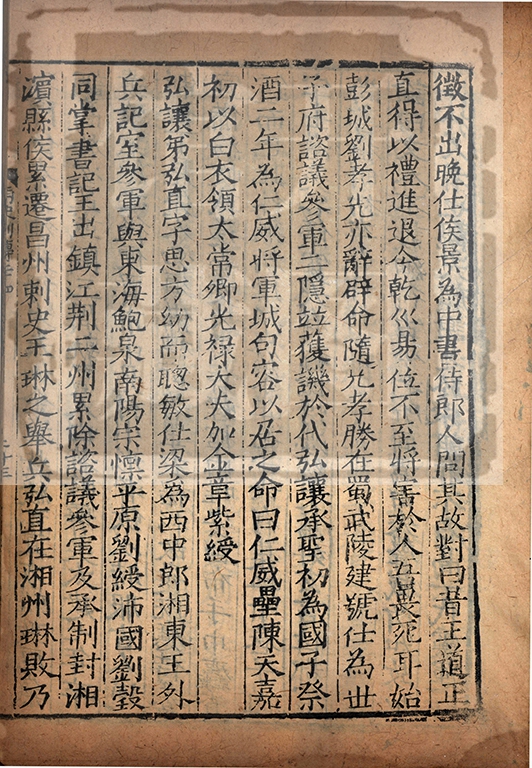 徵不出晚仕侯景為中書侍郎人問其故對曰昔王道正
直得以禮進退今乾巛易位不至將害於人吾畏死耳始
彭城劉孝先亦辭辟命隨兄孝勝在蜀武陵建號仕為世
子府諮議參軍二隱並獲譏於代弘讓承聖初為國子祭
酒二年為仁威將軍城句容以居之命曰仁威壘陳天嘉
初以白衣領太常卿光祿大夫加金章紫綬
弘讓弟弘直字思方幼而聰敏仕梁為西中郎湘東王外
兵記室參軍與東海鮑泉南陽宗懍平原劉緩沛國劉瑴
同掌書記王出鎮江荆二州累除諮議參軍及承制封湘
濵縣侯累遷昌州刺史王琳之舉兵弘直在湘州琳敗乃